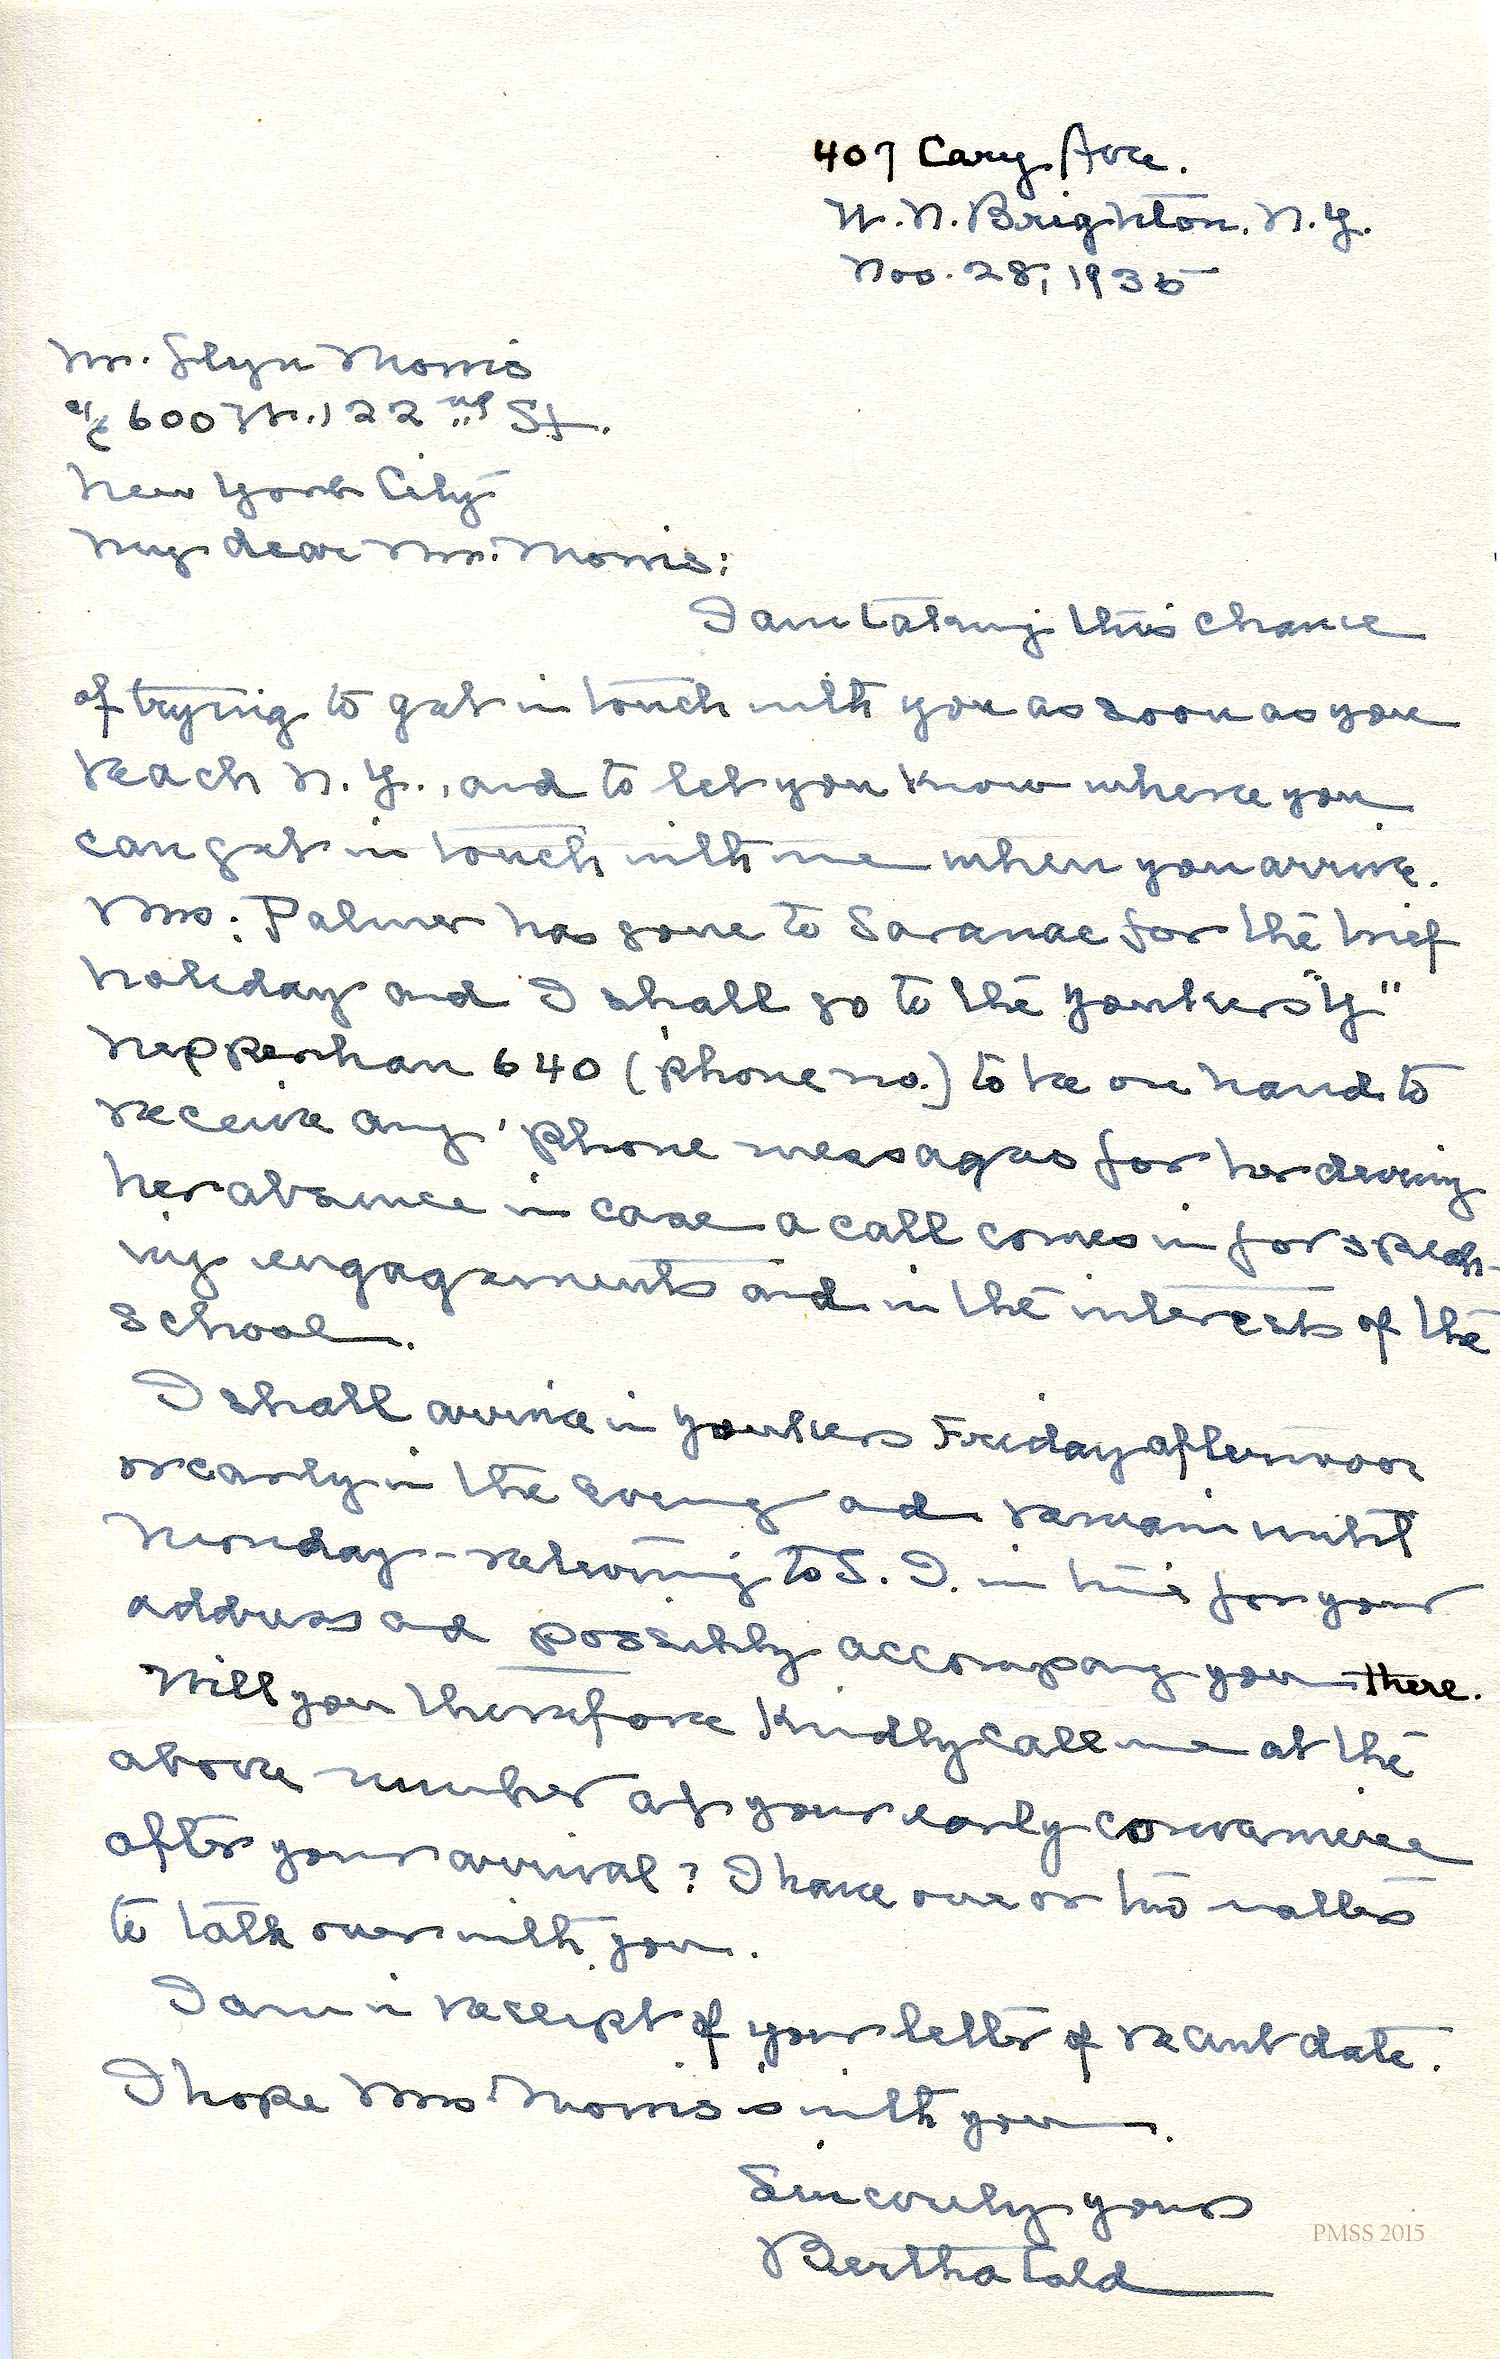 407 Cary Ave.
W. N. Brighton, N.Y.
Nov. 28, 1935
Mr. Glyn Morris
c/o 600 W. 122nd St.
New York City
My dear Mr. Morris:
I am taking this chance
of trying to get in touch with you as soon as you
reach N.Y., and to let you know where you
can get in touch with me when you arrive.
Mrs. Palmer has gone to Saranac for the brief
holiday and I shall go to the Yonkers "Y"
Nepperhan 640 ('phone no.) to be on hand to
receive any 'phone messages for her during
her absence in case a call comes in for speak-
ing engagements and in the interests of the
school.
I shall arrive in Yonkers Friday afternoon
or early in the evening and remain until
Monday - returning to S. I. in time for your
address and possibly accompany you there.
Will you therefore kindly call me at the
above number at your early convenience
after your arrival? I have one or two matters
to talk over with you.
I am in receipt of your letter of recent date.
I hope Mrs. Morris is with you.
Sincerely yours
Bertha Cold
PMSS 2015